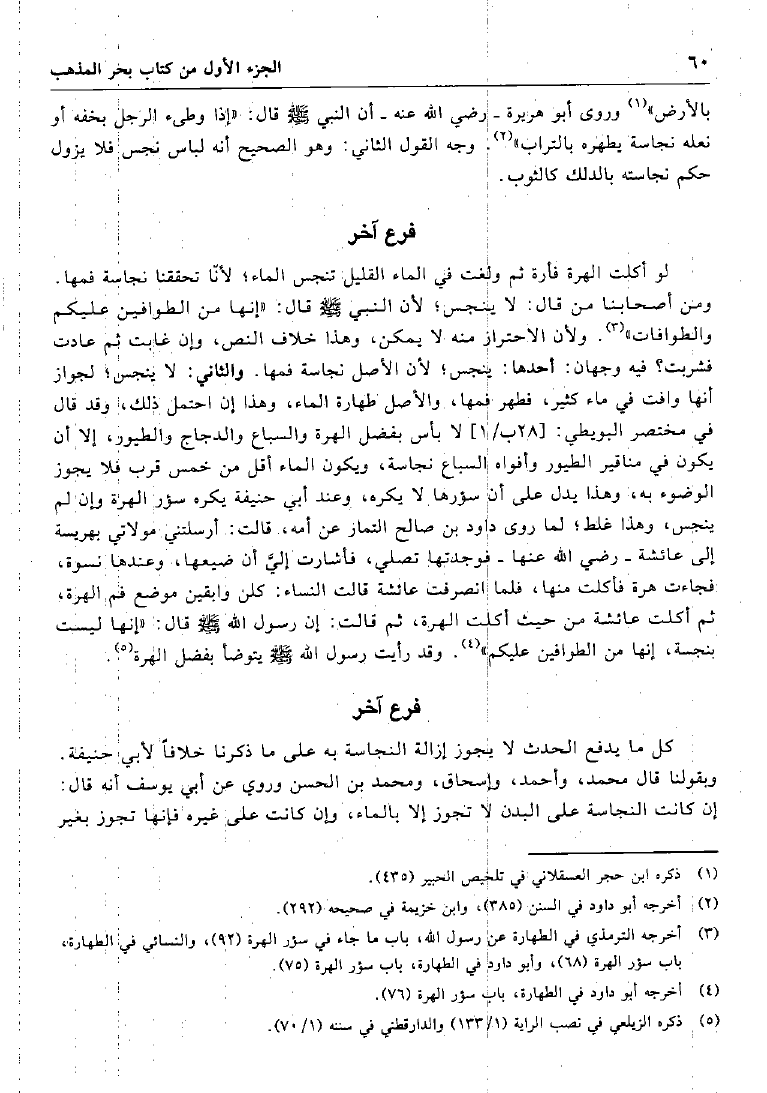 ٦٠ الجزء الأول من كتاب بحر المذهب
بالأرض»(١) وروى أبو هريرة ـ رضي الله عنه ـ أن النبي ﷺ قال: «إذا وطىء الرجل بخفه أو
نعله نجاسة يطهره بالتراب»(٢). وجه القول الثاني: وهو الصحيح أنه لباس نجس فلا يزول
حكم نجاسته بالدلك كالثوب.
فرع آخر
لو أكلت الهرة فأرة ثم ولغت في الماء القليل تنجس الماء؛ لأنّا تحققنا نجاسة فمها.
ومن أصحابنا من قال: لا ينجس؛ لأن النبي ﷺ قال: «إنها من الطوافين عليكم
والطوافات»(٣). ولأن الاحتراز منه لا يمكن، وهذا خلاف النص، وإن غابت ثم عادت
فشربت؟ فيه وجهان: أحدها: ينجس؛ لأن الأصل نجاسة فمها. والثاني: لا ينجس؛ لجواز
أنها وافت في ماء كثير، فطهر فمها، والأصل طهارة الماء، وهذا إن احتمل ذلك، وقد قال
في مختصر البويطي: [٢٨ب/١] لا بأس بفضل الهرة والسباع والدجاج والطيور، إلا أن
يكون في مناقير الطيور وأفواه السباع نجاسة، ويكون الماء أقل من خمس قرب فلا يجوز
الوضوء به، وهذا يدل على أن سؤرها لا يكره، وعند أبي حنيفة يكره سؤر الهرة وإن لم
ينجس، وهذا غلط؛ لما روى داود بن صالح التماز عن أمه، قالت: أرسلتني مولاتي بهريسة
إلى عائشة ـ رضي الله عنها ـ فوجدتها تصلي، فأشارت إليَّ أن ضيعها، وعندها نسوة،
فجاءت هرة فأكلت منها، فلما انصرفت عائشة قالت النساء: كلن وابقين موضع فم الهرة،
ثم أكلت عائشة من حيث أكلت الهرة، ثم قالت: إن رسول الله ﷺ قال: «إنها ليست
بنجسة، إنها من الطوافين عليكم»(٤). وقد رأيت رسول الله ﷺ يتوضأ بفضل الهرة(٥).
فرع آخر
كل ما يدفع الحدث لا يجوز إزالة النجاسة به على ما ذكرنا خلافاً لأبي حنيفة.
وبقولنا قال محمد، وأحمد، وإسحاق، ومحمد بن الحسن وروي عن أبي يوسف أنه قال:
إن كانت النجاسة على البدن لا تجوز إلا بالماء، وإن كانت على غيره فإنها تجوز بغير
(١) ذكره ابن حجر العسقلاني في تلخيص الحبير (٤٣٥).
(٢) أخرجه أبو داود في السنن (٣٨٥)، وابن خزيمة في صحيحه (٢٩٢).
(٣) أخرجه الترمذي في الطهارة عن رسول الله، باب ما جاء في سؤر الهرة (٩٢)، والنسائي في الطهارة،
باب سؤر الهرة (٦٨)، وأبو دارد في الطهارة، باب سؤر الهرة (٧٥).
(٤) أخرجه أبو دارد في الطهارة، باب سؤر الهرة (٧٦).
(٥) ذكره الزيلعي في نصب الراية (١/١٣٣) والدارقطني في سننه (١/٧٠).